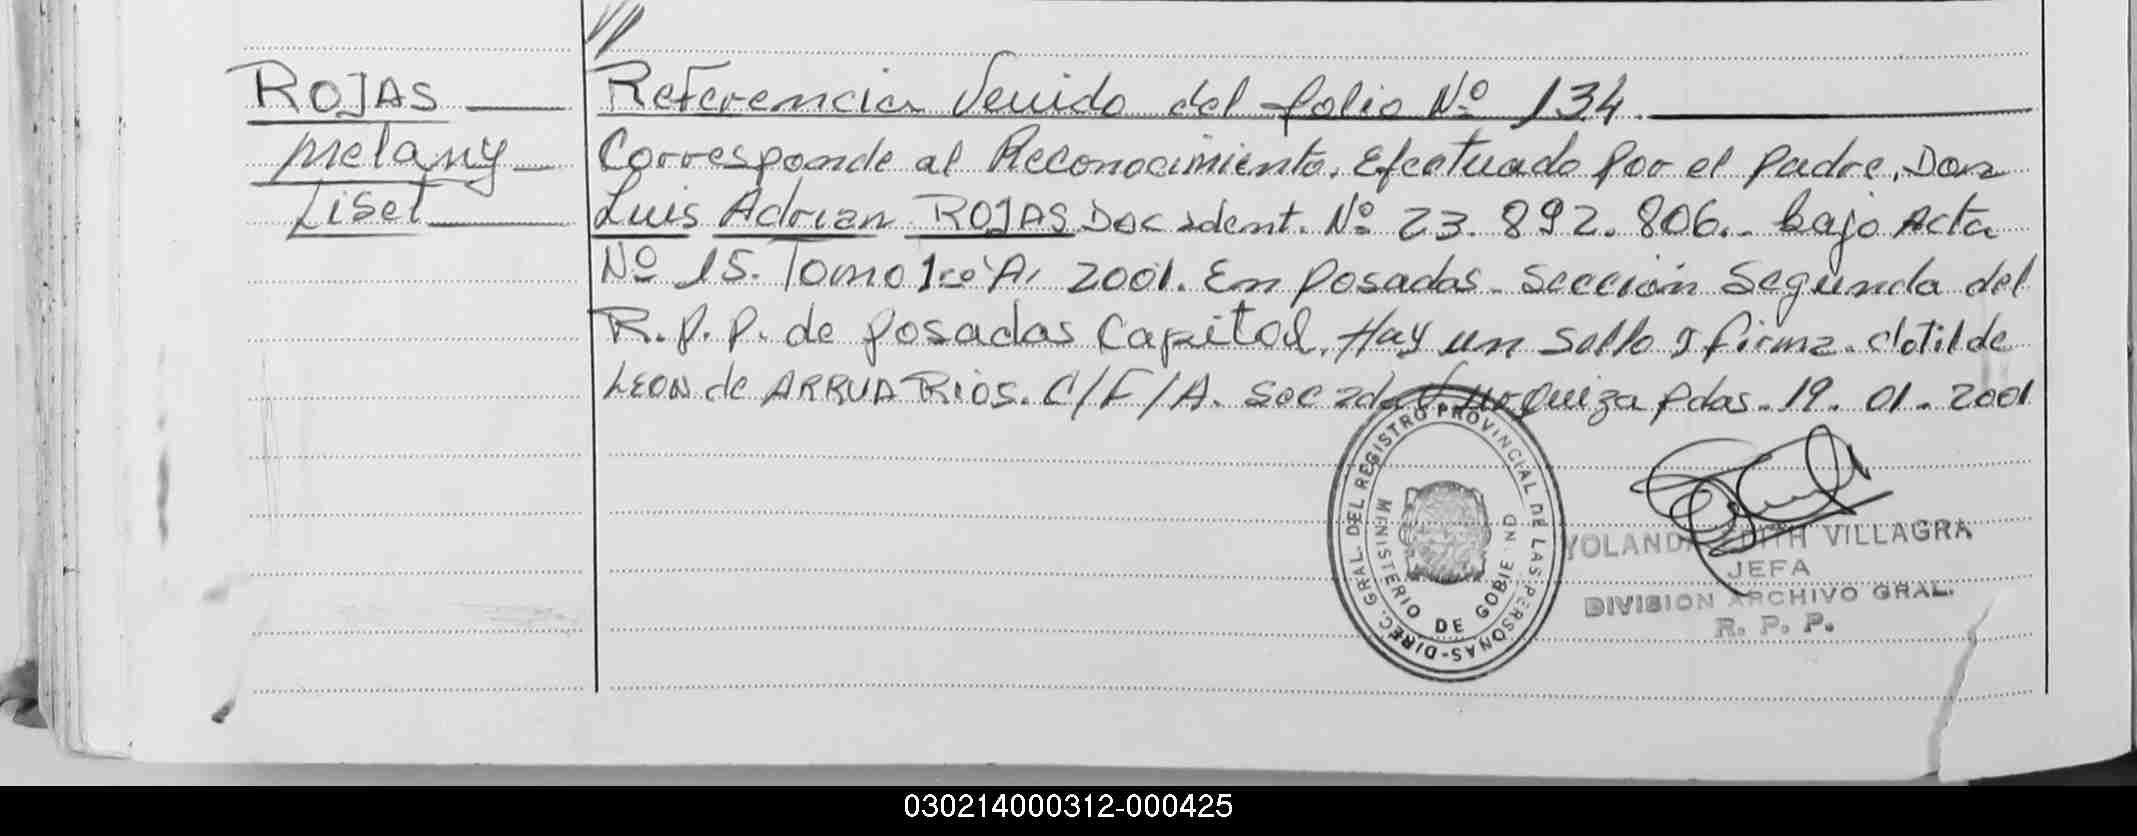 ROJAS
Melany
Liset
Referencia Venido del folio Nº 134.
Corresponde al Reconocimiento, Efectuado por el padre, Don
Luis Adrian ROJAS Doc ident. Nº 23.892.806.- bajo Acta
Nº 15. Tomo 1ro A, 2001. En Posadas. Sección Segunda del
R.P.P. de Posadas Capital. Hay un Sello y firma. Clotilde
LEON de ARRUA RIOS. C/F/A. Sec 2da Urquiza Pdas. 19.01.2001
DIREC. GRAL. DEL REGISTRO PROVINCIAL DE LAS PERSONAS-
MINISTERIO DE GOBIE
YOLANDA EDITH VILLAGRA
JEFA
DIVISION ARCHIVO GRAL.
R. P. P.
030214000312-000425